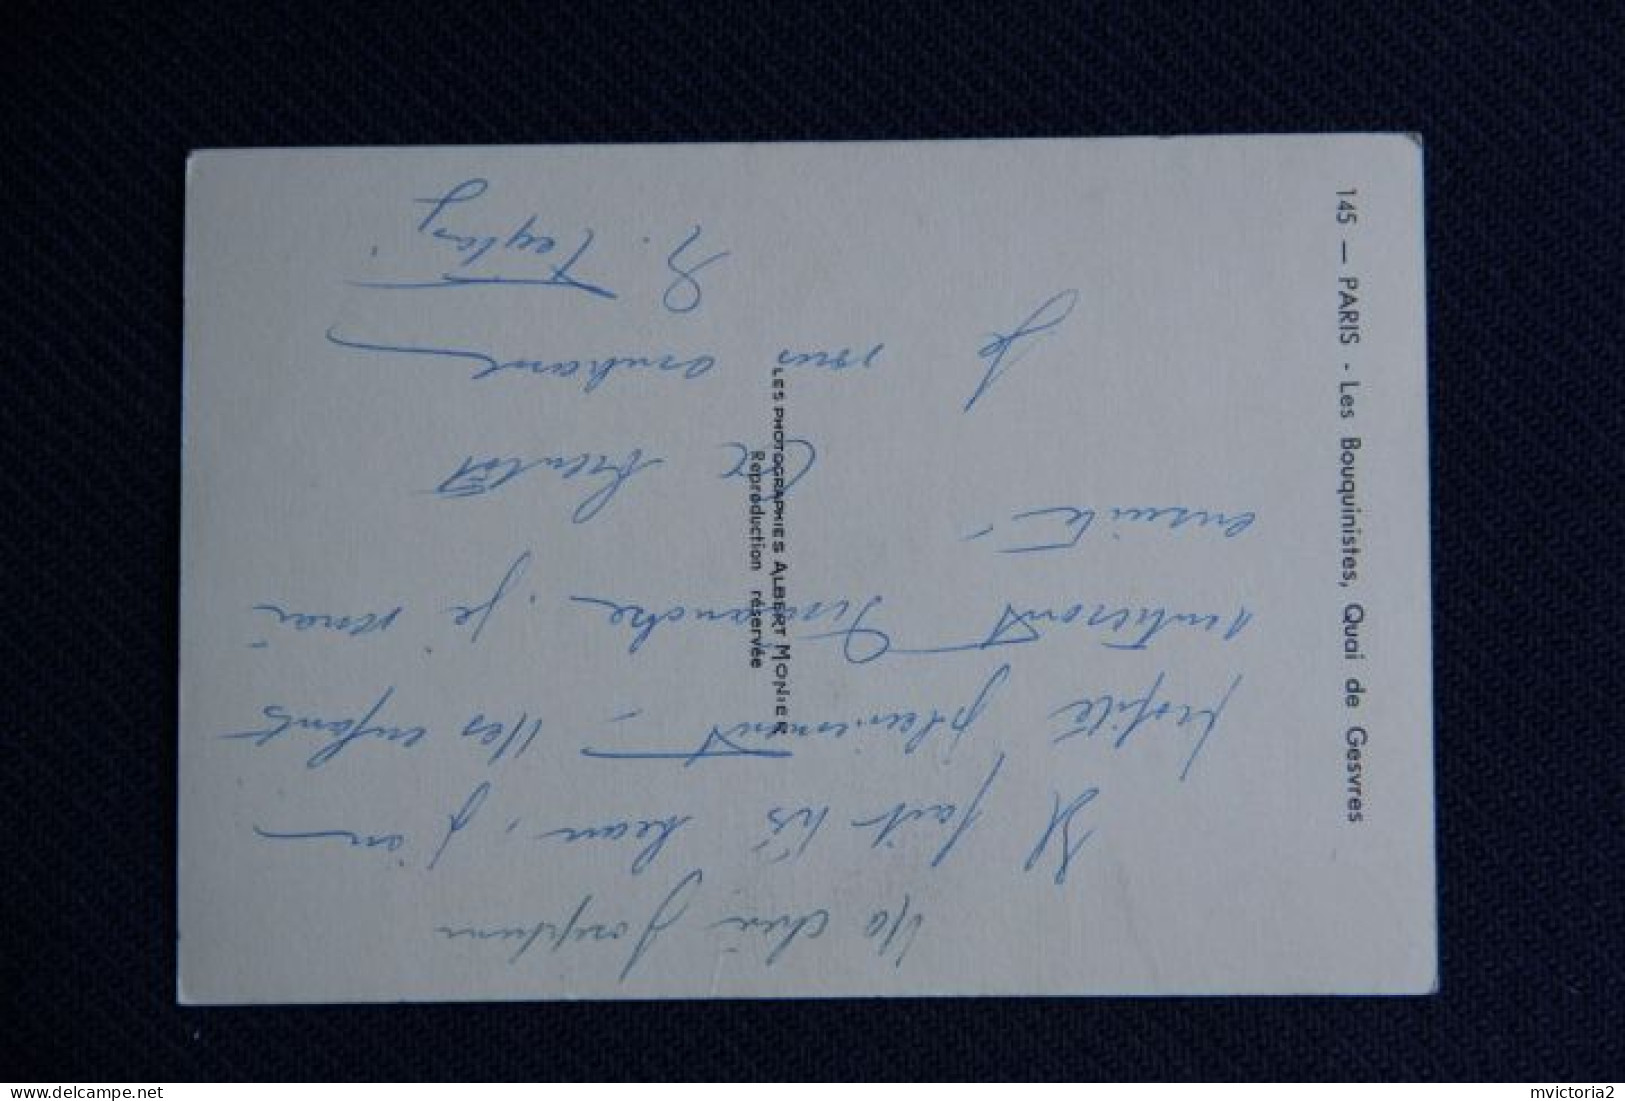 145 — PARIS - Les Bouquinistes, Quai de Gesvres
LES PHOTOGRAPHIES ALBERT MONIER
Reproduction réservée
Ma chère Joséphine
Il fait très beau, j'en
profite pleinement - Mes enfants
rentreront Dimanche, je verrai
ensuite -
A bientôt
Je vous embrasse
mvictoria2